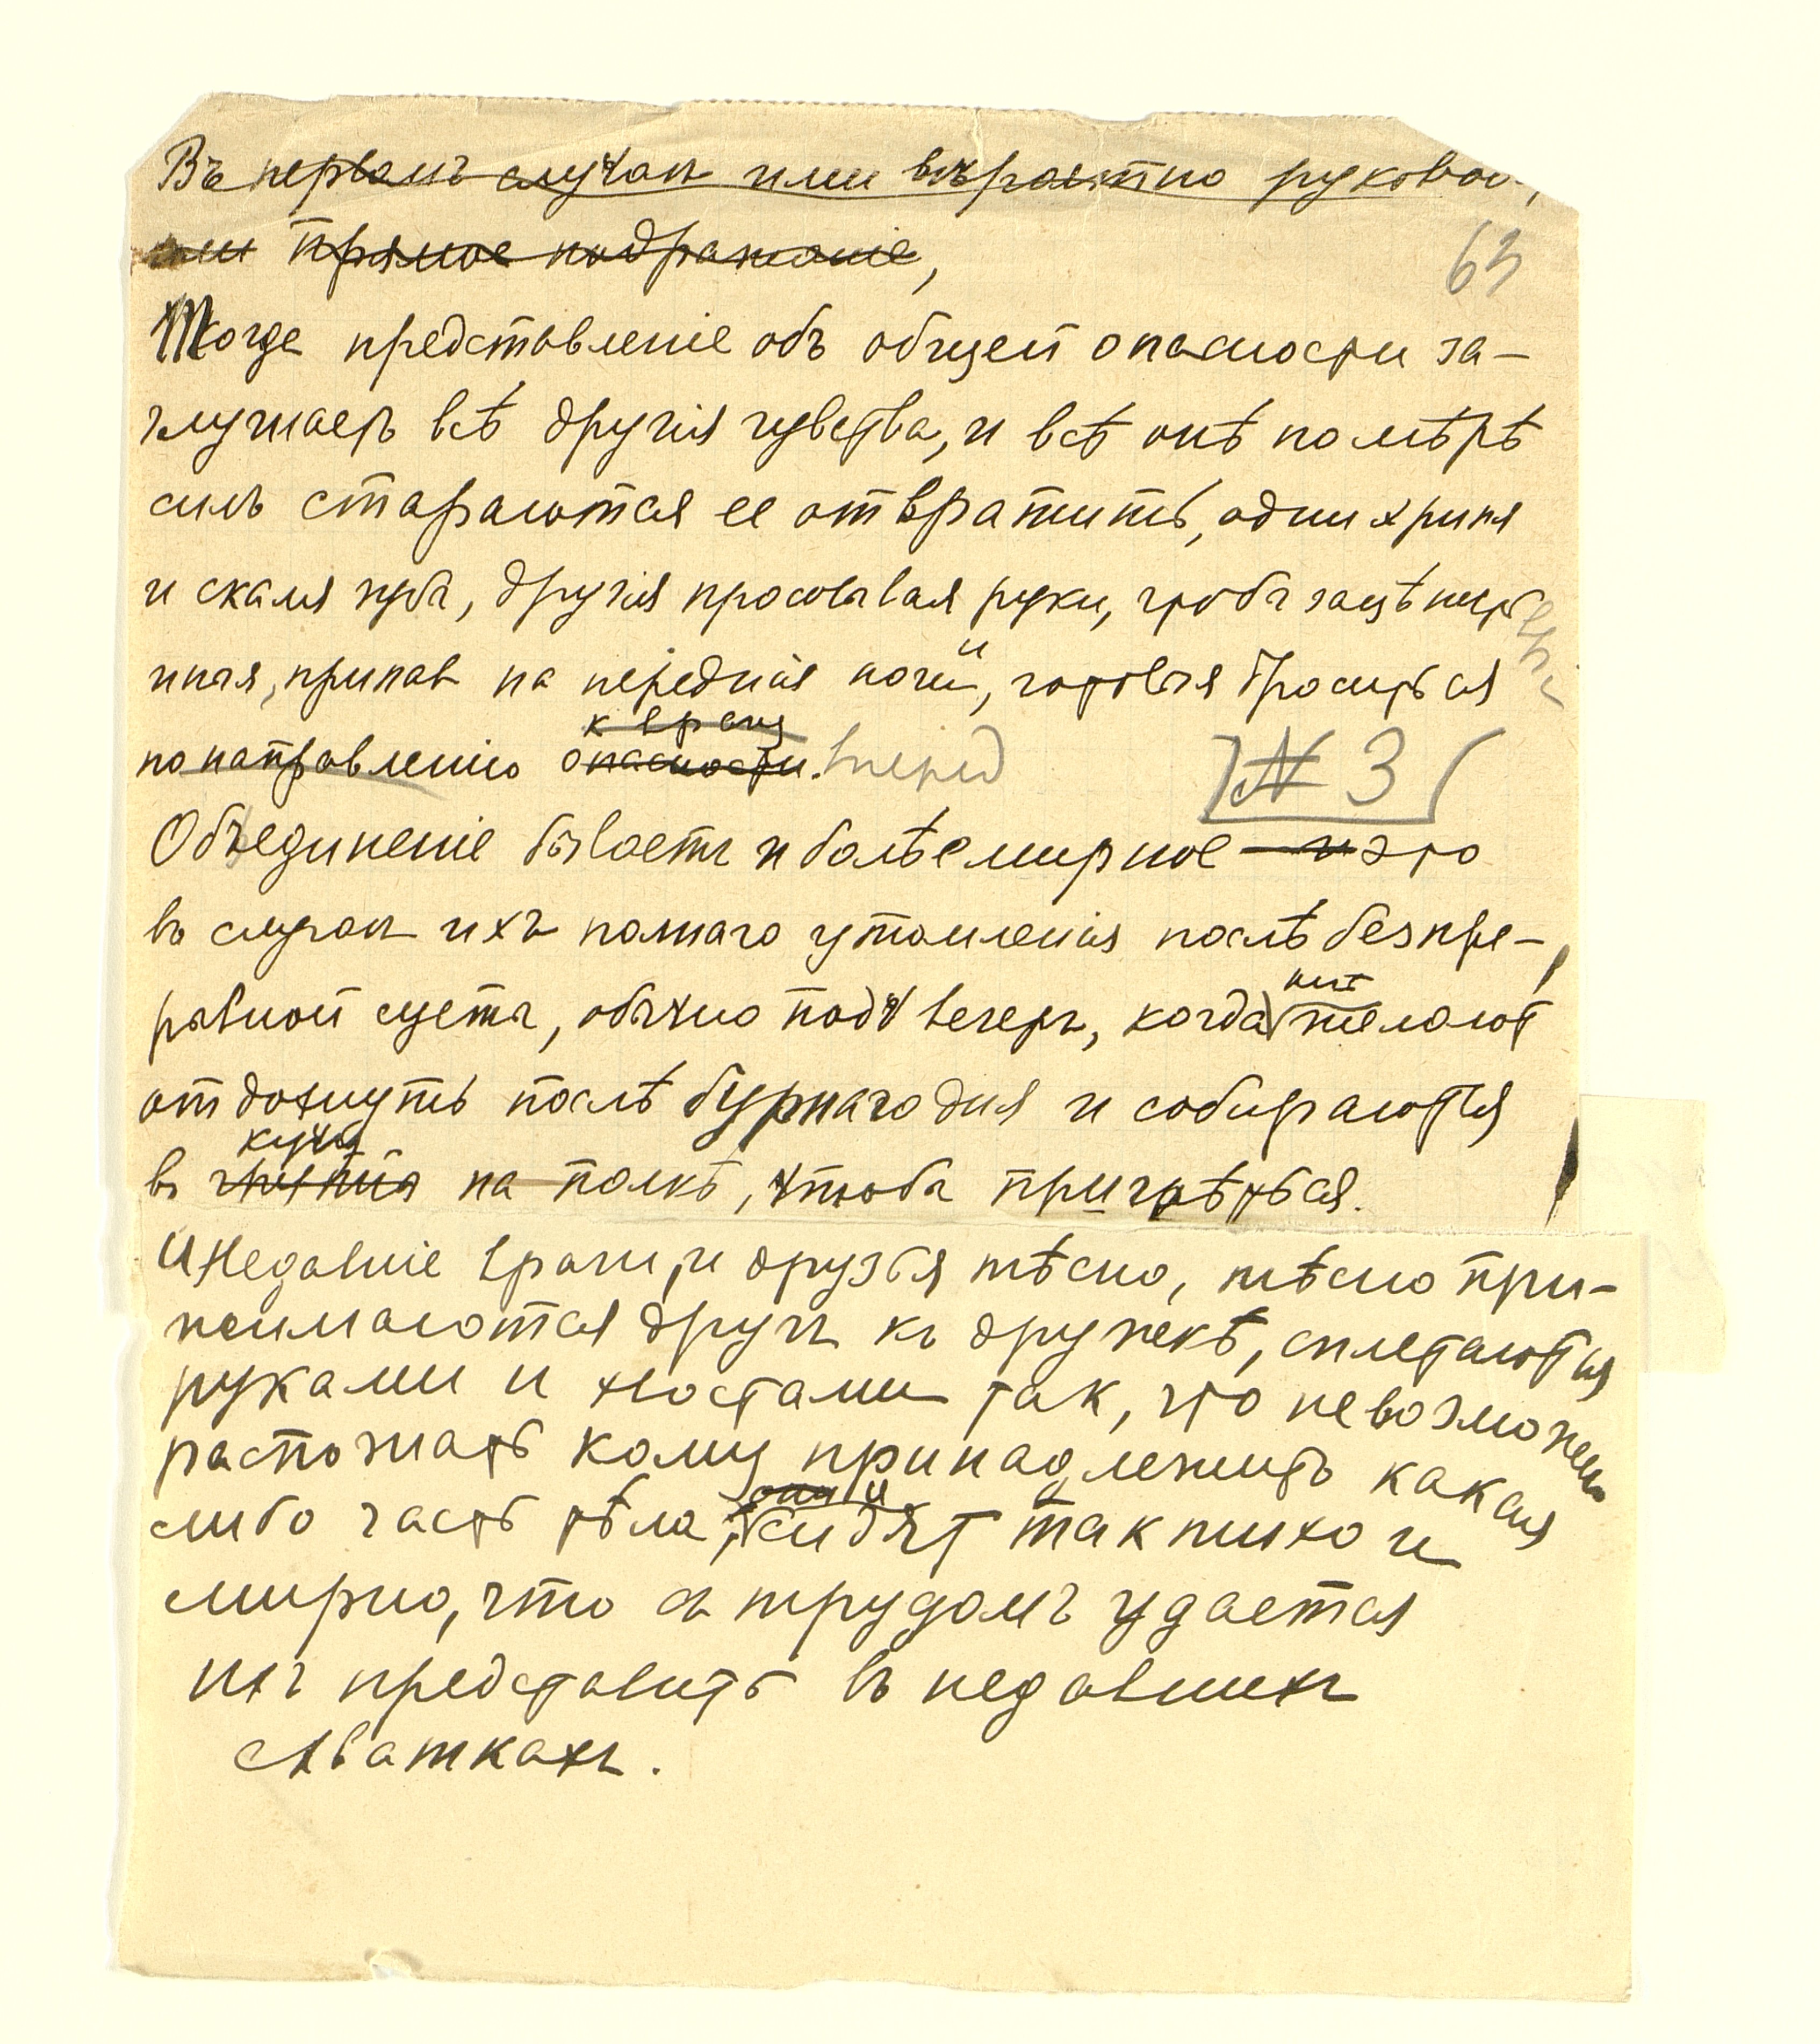 Въ первомъ случаѣ ими вѣроятно руковод
или прямое подражаніе,
63
Тогда представленіе объ общей опасности за-
глушаетъ всѣ другія чувства, и всѣ онѣ по мѣрѣ
силъ стараются ее отвратить, одни хрипя
и скаля зубы, другія просовывая руки, чтобы зацѣпить
иныя, припав на переднія ноги, готовыя броситься
к врагу
по направленію опасности. вперед
№ 3
Объединеніе бываетъ и болѣе мирное — и это
въ случаѣ ихъ полнаго утомленія послѣ безпре-
рывной суеты, обычно подъ вечеръ, когда
желают
отдохнуть послѣ бурнаго дня и собираются
кучу
въ на полкѣ, чтобы пригрѣться.
И недавніе враги, и друзья тѣсно, тѣсно при-
жимаются другъ къ дружкѣ, сплетаются
руками и хвостами так, что невозможно
распознать кому принадлежитъ какая
они и
либо часть тѣла, сидят так тихо и
мирно, что съ трудомъ удается
ихъ представить въ недавнихъ
схваткахъ.